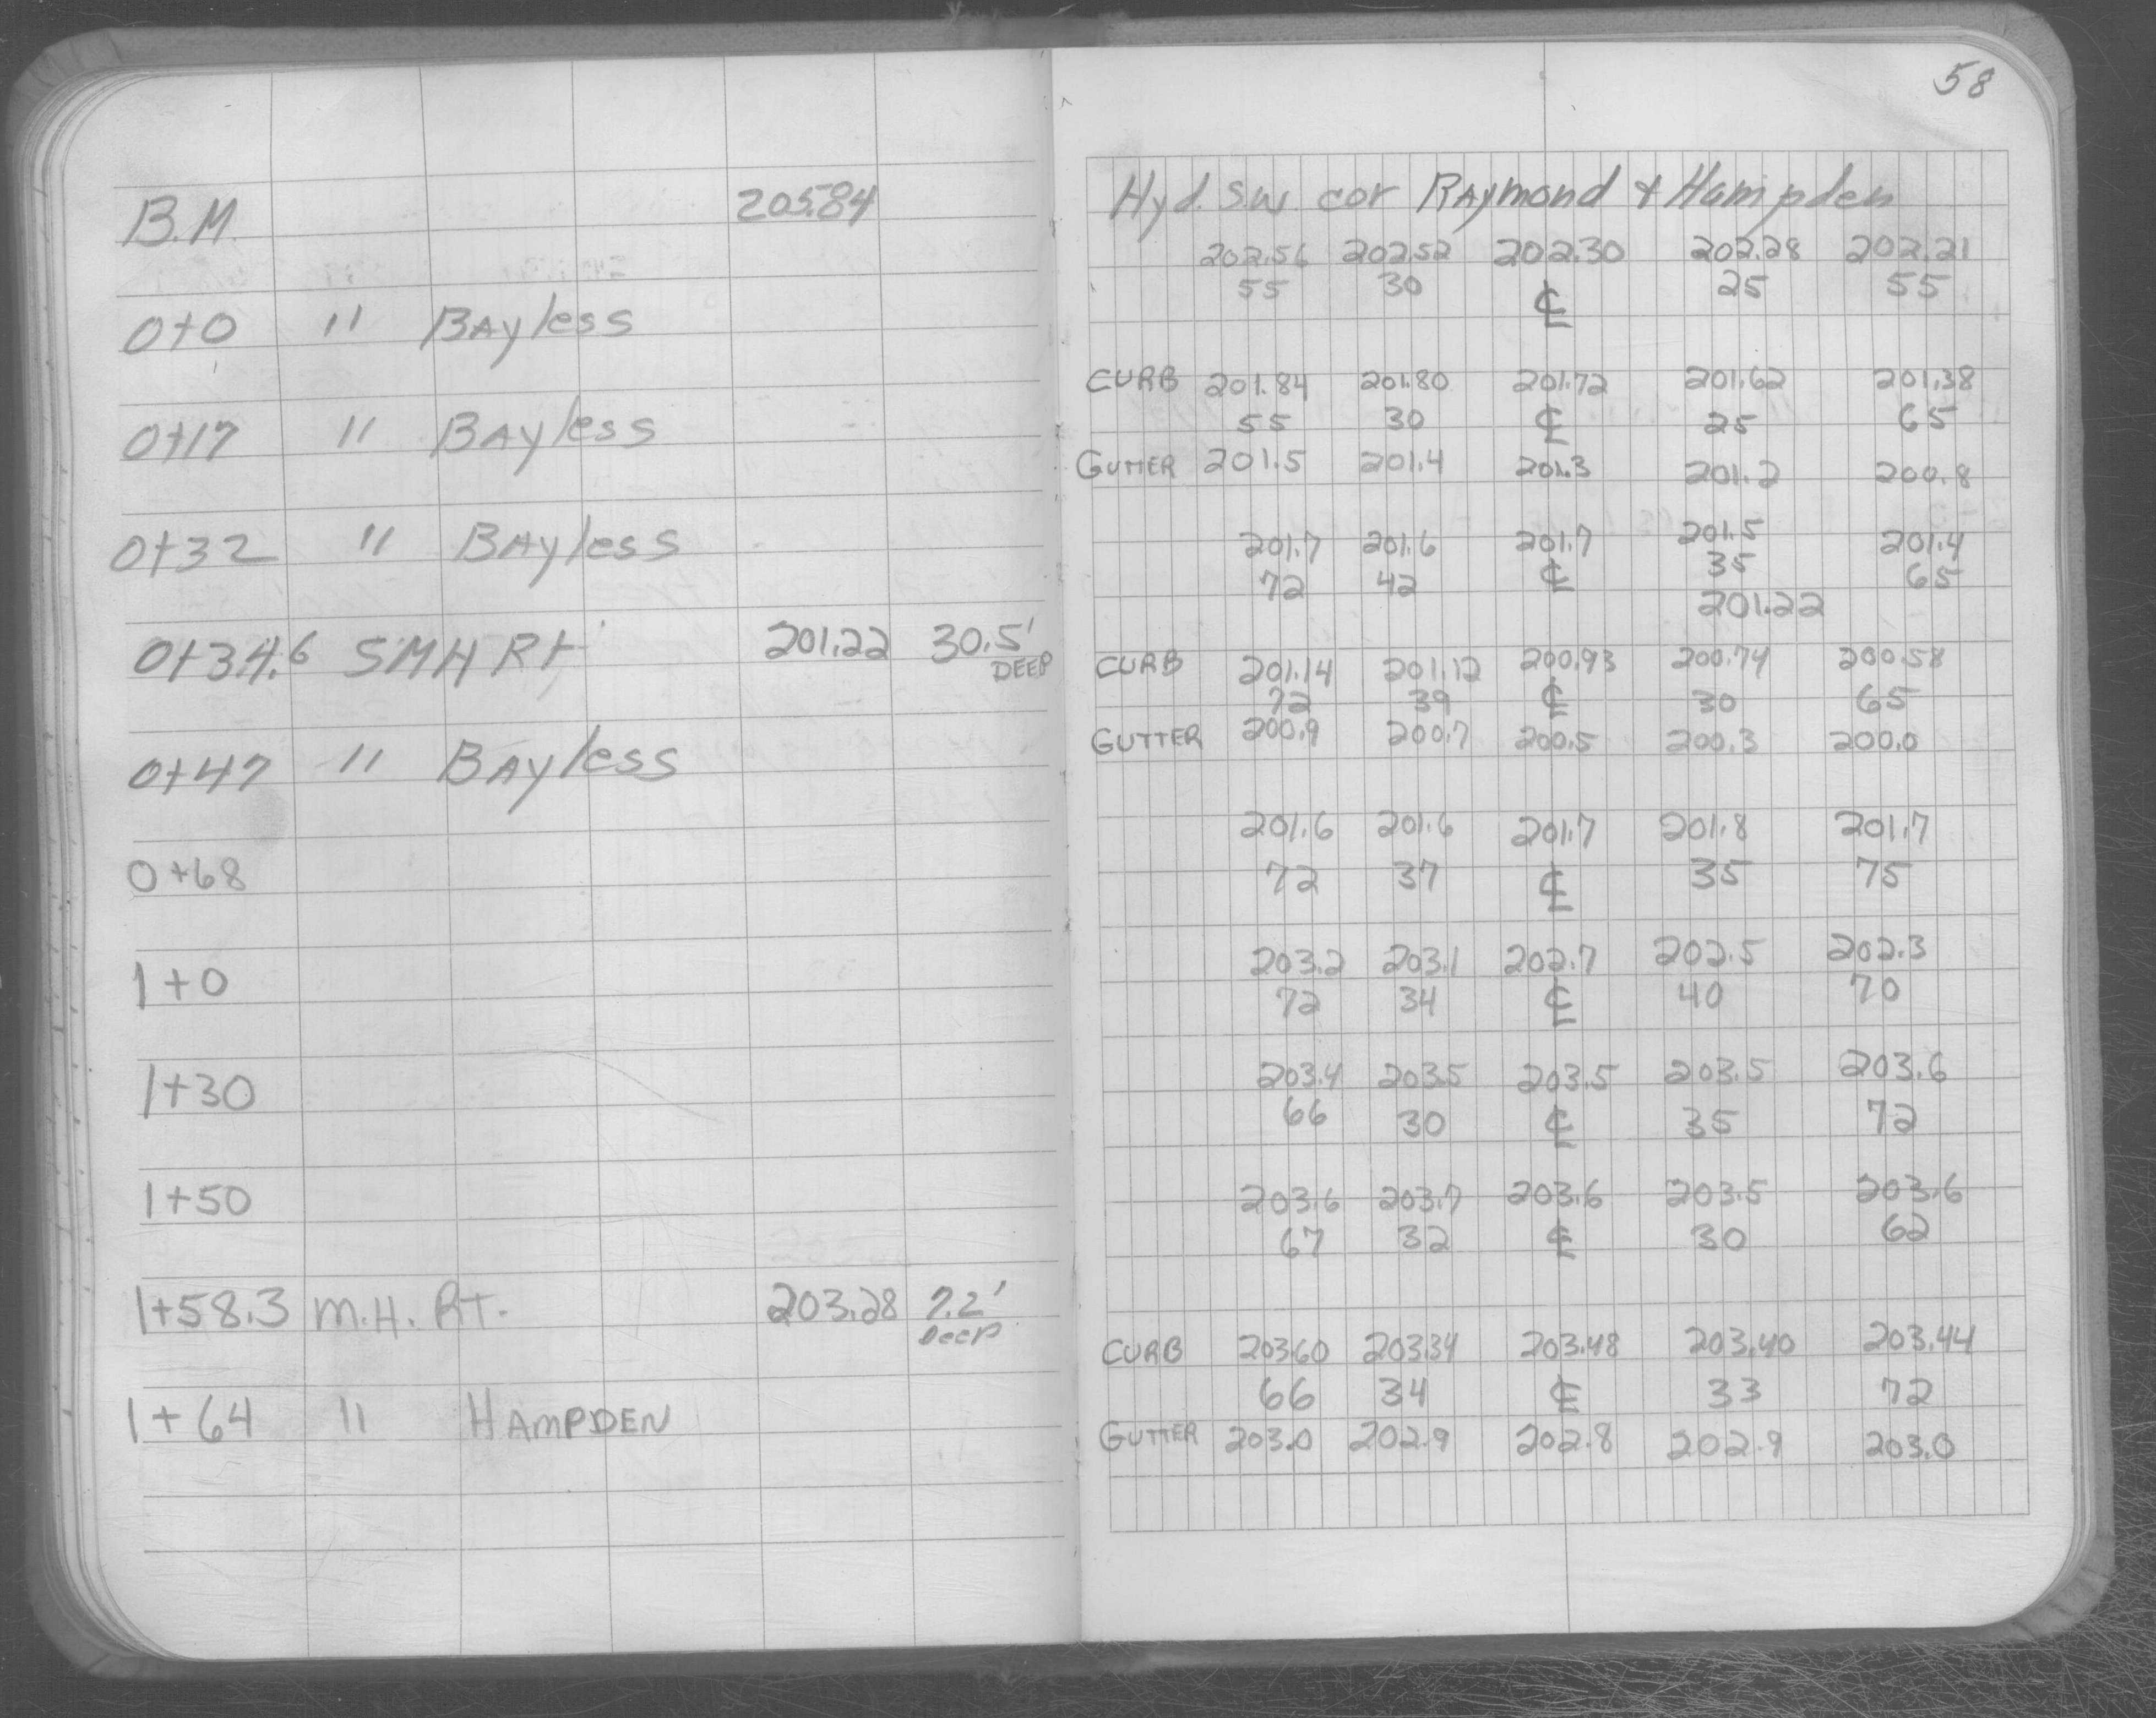 58
B.M. 205.84
Hyd. S.W. cor Raymond & Hampden
202.56 202.52 202.30 202.28 202.21
55 30 ℄ 25 55
0+0 " Bayless
CURB 201.84 201.80 201.72 201.62 201.38
55 30 ℄ 25 65
0+17 " Bayless
GUTTER 201.5 201.4 201.3 201.2 200.8
201.7 201.6 201.7 201.5 201.4
72 42 ℄ 35 65
0+32 " Bayless
201.22
0+34.6 SMH Rt 201.22 30.5' DEEP
CURB 201.14 201.12 200.93 200.74 200.58
72 39 ℄ 30 65
0+47 " Bayless
GUTTER 200.9 200.7 200.5 200.3 200.0
201.6 201.6 201.7 201.8 201.7
0+68
72 37 ℄ 35 75
203.2 203.1 202.7 202.5 202.3
1+0
72 34 ℄ 40 70
203.4 203.5 203.5 203.5 203.6
1+30
66 30 ℄ 35 72
203.6 203.7 203.6 203.5 203.6
1+50
67 32 ℄ 30 62
1+58.3 M.H. RT. 203.28 7.2' Deep
CURB 203.60 203.34 203.48 203.40 203.44
66 34 ℄ 33 72
1+64 " HAMPDEN
GUTTER 203.0 202.9 202.8 202.9 203.0